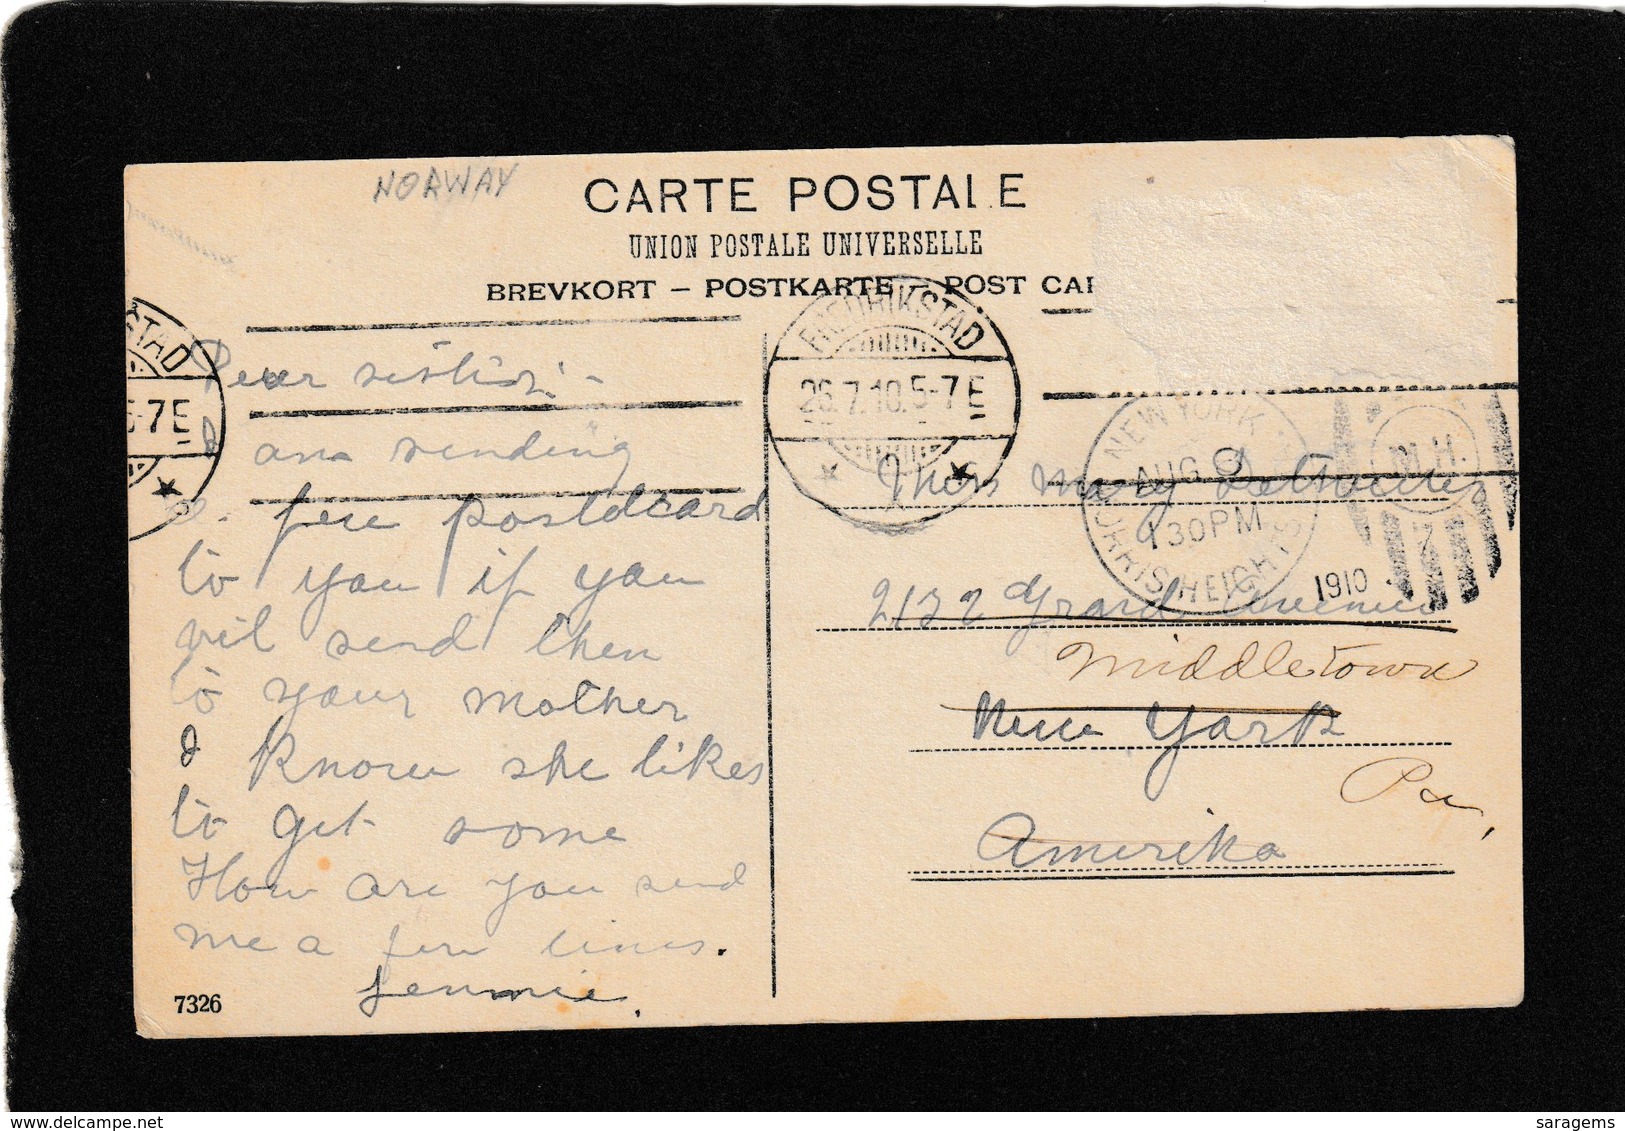 NORWAY
CARTE POSTALE
UNION POSTALE UNIVERSELLE
BREVKORT – POSTKARTE – POST CAR
STAD
5-7 E
FREDRIKSTAD
26.7.10.5-7 E
NEW YORK
AUG 9
130 PM
MORRIS HEIGHTS
1910
M.H.
Dear
I am sending
a few postdcard
to you if you
vil send then
to your mother
I know she likes
to get some
How are you send
me a few lines.
Jennie.
7326
Miss Mary
2132 Grand Avenue
Middletown
New York
Pa,
Amerika
saragems